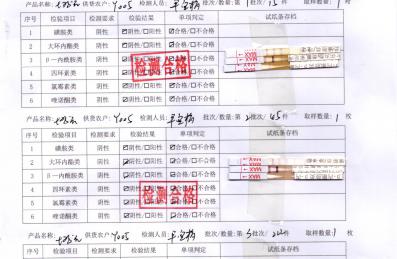 产品名称: 供货农户: Y005 检测人员: 批次/数量: 第1批次/15件 取样数量: 1枚
序号 检验项目 检测要求 检验结果 单项判定 试纸条存档
1 磺胺类 阴性 ☑阴性/□阳性 ☑合格/□不合格
2 大环内酯类 阴性 ☑阴性/□阳性 ☑合格/□不合格
3 β一内酰胺类 阴性 ☑阴性/□阳性 ☑合格/□不合格
4 四环素类 阴性 ☑阴性/□阳性 ☑合格/□不合格
5 氯霉素类 阴性 ☑阴性/□阳性 ☑合格/□不合格
6 喹诺酮类 阴性 ☑阴性/□阳性 ☑合格/□不合格
检测合格
MAX
产品名称: 供货农户: Y005 检测人员: 批次/数量: 第2批次/45件 取样数量: 1枚
序号 检验项目 检测要求 检验结果 单项判定 试纸条存档
1 磺胺类 阴性 ☑阴性/□阳性 ☑合格/□不合格
2 大环内酯类 阴性 ☑阴性/□阳性 ☑合格/□不合格
3 β一内酰胺类 阴性 ☑阴性/□阳性 ☑合格/□不合格
4 四环素类 阴性 ☑阴性/□阳性 ☑合格/□不合格
5 氯霉素类 阴性 ☑阴性/□阳性 ☑合格/□不合格
6 喹诺酮类 阴性 ☑阴性/□阳性 ☑合格/□不合格
检测合格
MAX
产品名称: 供货农户: Y005 检测人员: 批次/数量: 第3批次/ 件 取样数量: 1枚
序号 检验项目 检测要求 检验结果 单项判定 试纸条存档